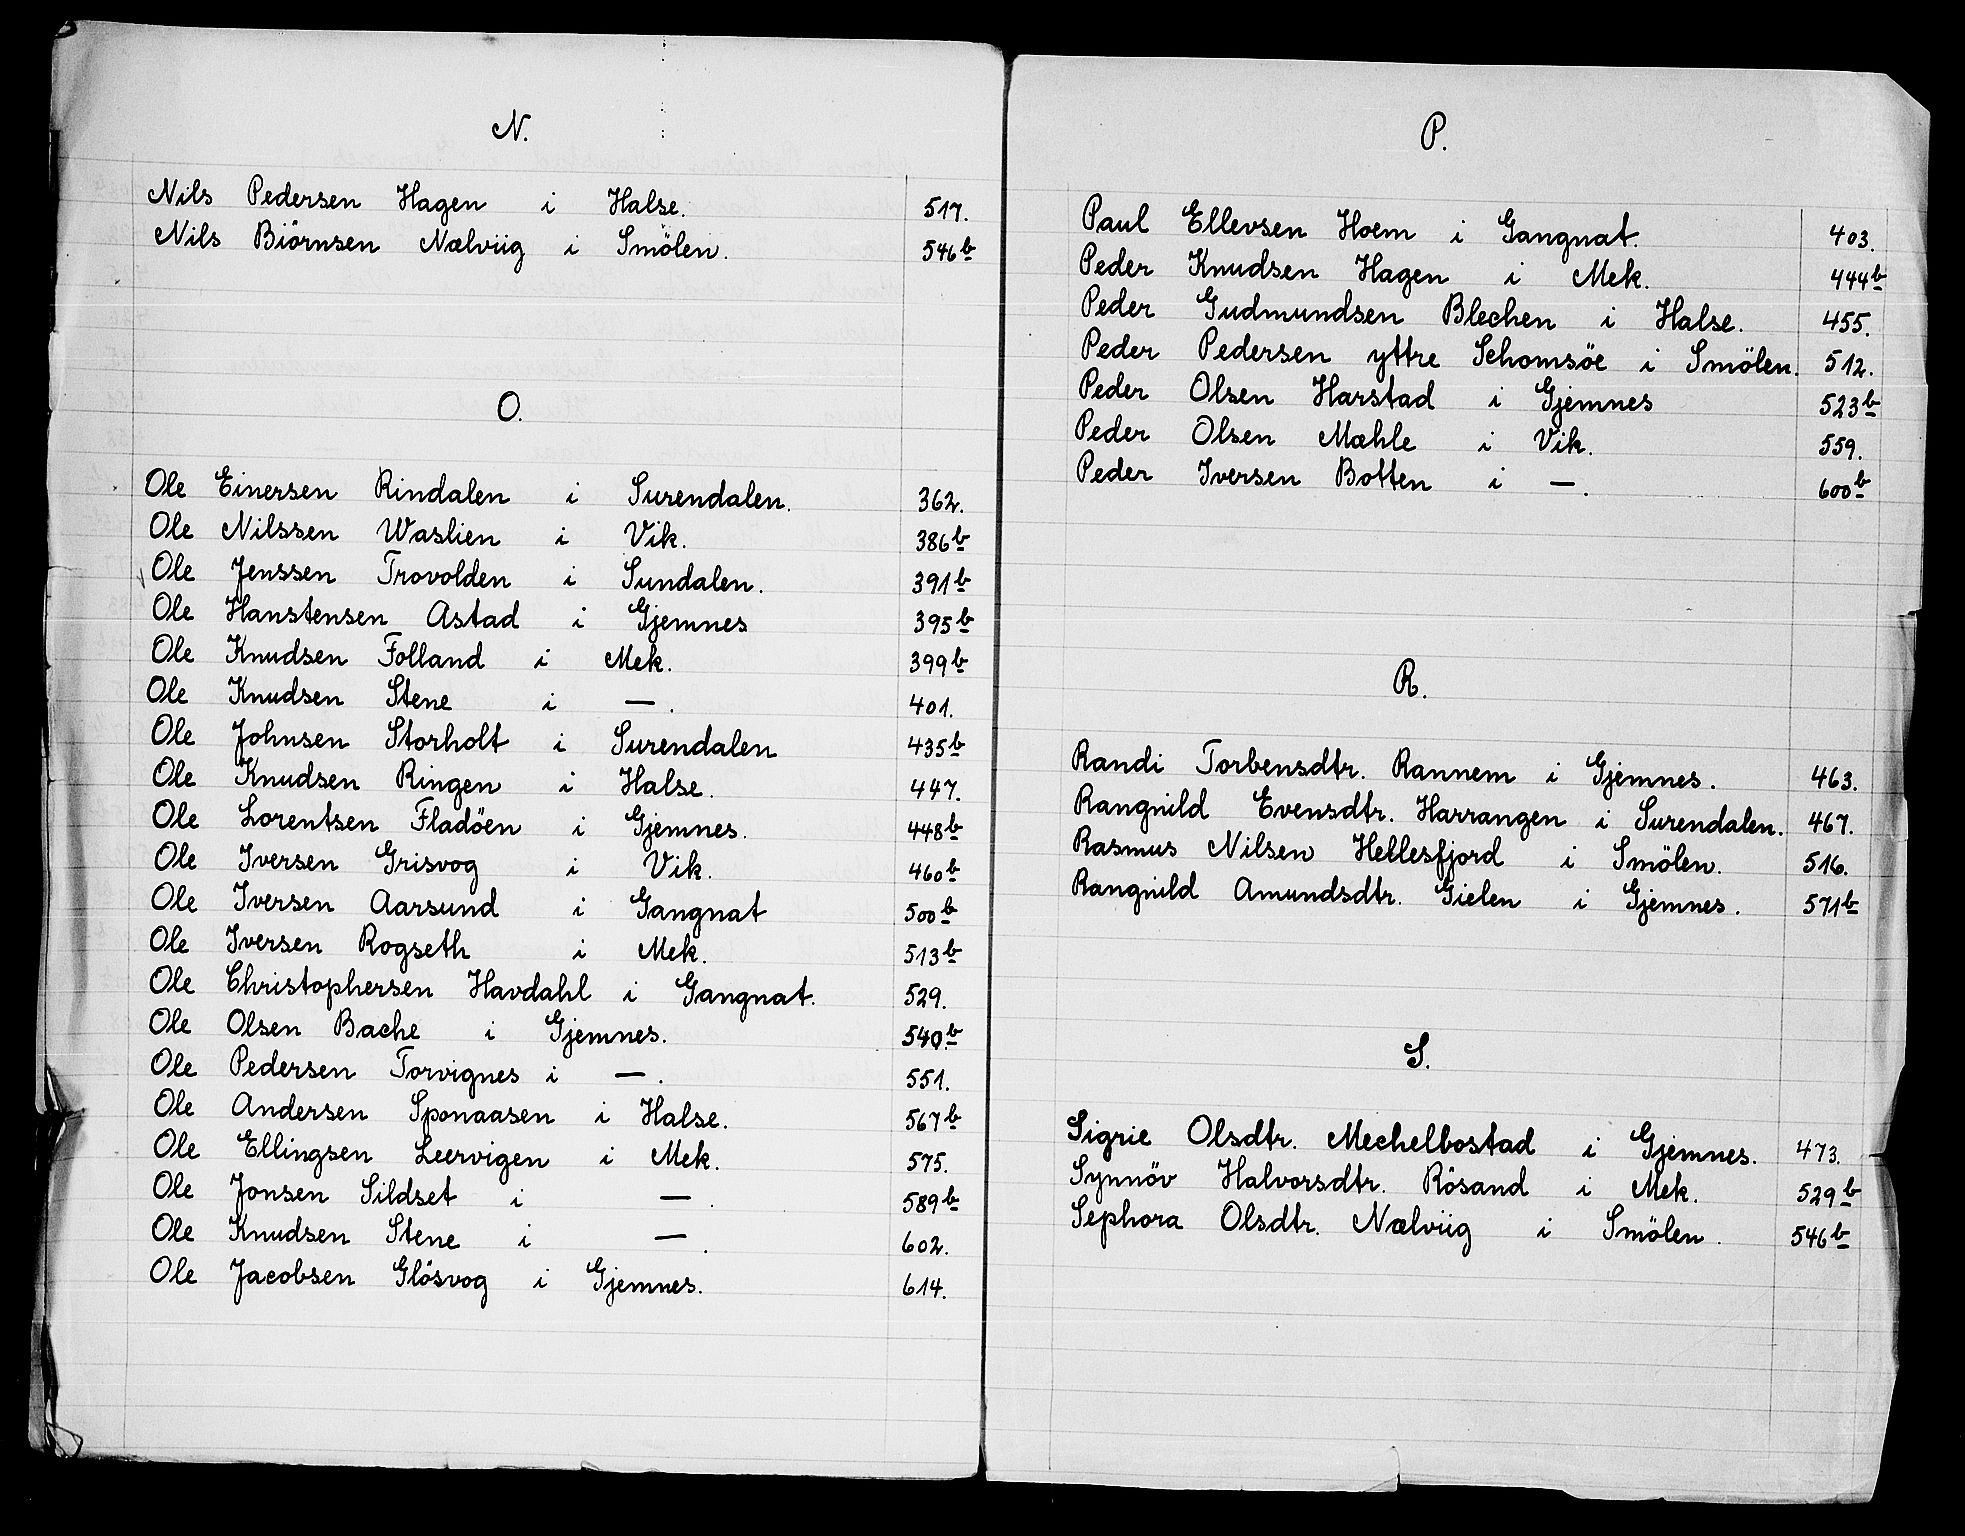 N.
Nils Pedersen Hagen i Halse. 517.
Nils Biörnsen Nælviig i Smölen. 546b
O.
Ole Einersen Rindalen i Surendalen. 362.
Ole Nilssen Waslien i Vik. 386b
Ole Jenssen Trovolden i Sundalen. 391b
Ole Hanstensen Astad i Gjemnes 395b
Ole Knudsen Folland i Mek. 399b
Ole Knudsen Stene i —. 401.
Ole Johnsen Storholt i Surendalen 435b
Ole Knudsen Ringen i Halse. 447.
Ole Lorentsen Fladöen i Gjemnes. 448b
Ole Iversen Grisvog i Vik. 460b
Ole Iversen Aarsund i Gangnat 500b
Ole Iversen Rogseth i Mek. 513b
Ole Christophersen Havdahl i Gangnat. 529.
Ole Olsen Bache i Gjemnes. 540.b
Ole Pedersen Torvignes i —. 551.
Ole Andersen Sponaasen i Halse. 567b
Ole Ellingsen Leervigen i Mek. 575.
Ole Jonsen Sildset i —. 589b
Ole Knudsen Stene i —. 602.
Ole Jacobsen Glösvog i Gjemnes. 614.
P.
Paul Ellevsen Hoem i Gangnat. 403.
Peder Knudsen Hagen i Mek. 444b
Peder Gudmundsen Blechen i Halse. 455.
Peder Pedersen yttre Schomsöe i Smölen. 512.
Peder Olsen Harstad i Gjemnes 523b
Peder Olsen Mæhle i Vik. 559.
Peder Iversen Botten i —. 600b
R.
Randi Torbensdtr. Rannem i Gjemnes. 463.
Rangnild Evensdtr. Harrangen i Surendalen. 467.
Rasmus Nilsen Hellesfjord i Smölen. 516.
Rangnild Amundsdtr. Gielen i Gjemnes. 571b
S.
Sigrie Olsdtr. Mechelbostad i Gjemnes. 473.
Synnöv Halvorsdtr. Rösand i Mek. 529b
Sephora Olsdtr. Nælviig i Smölen. 546b